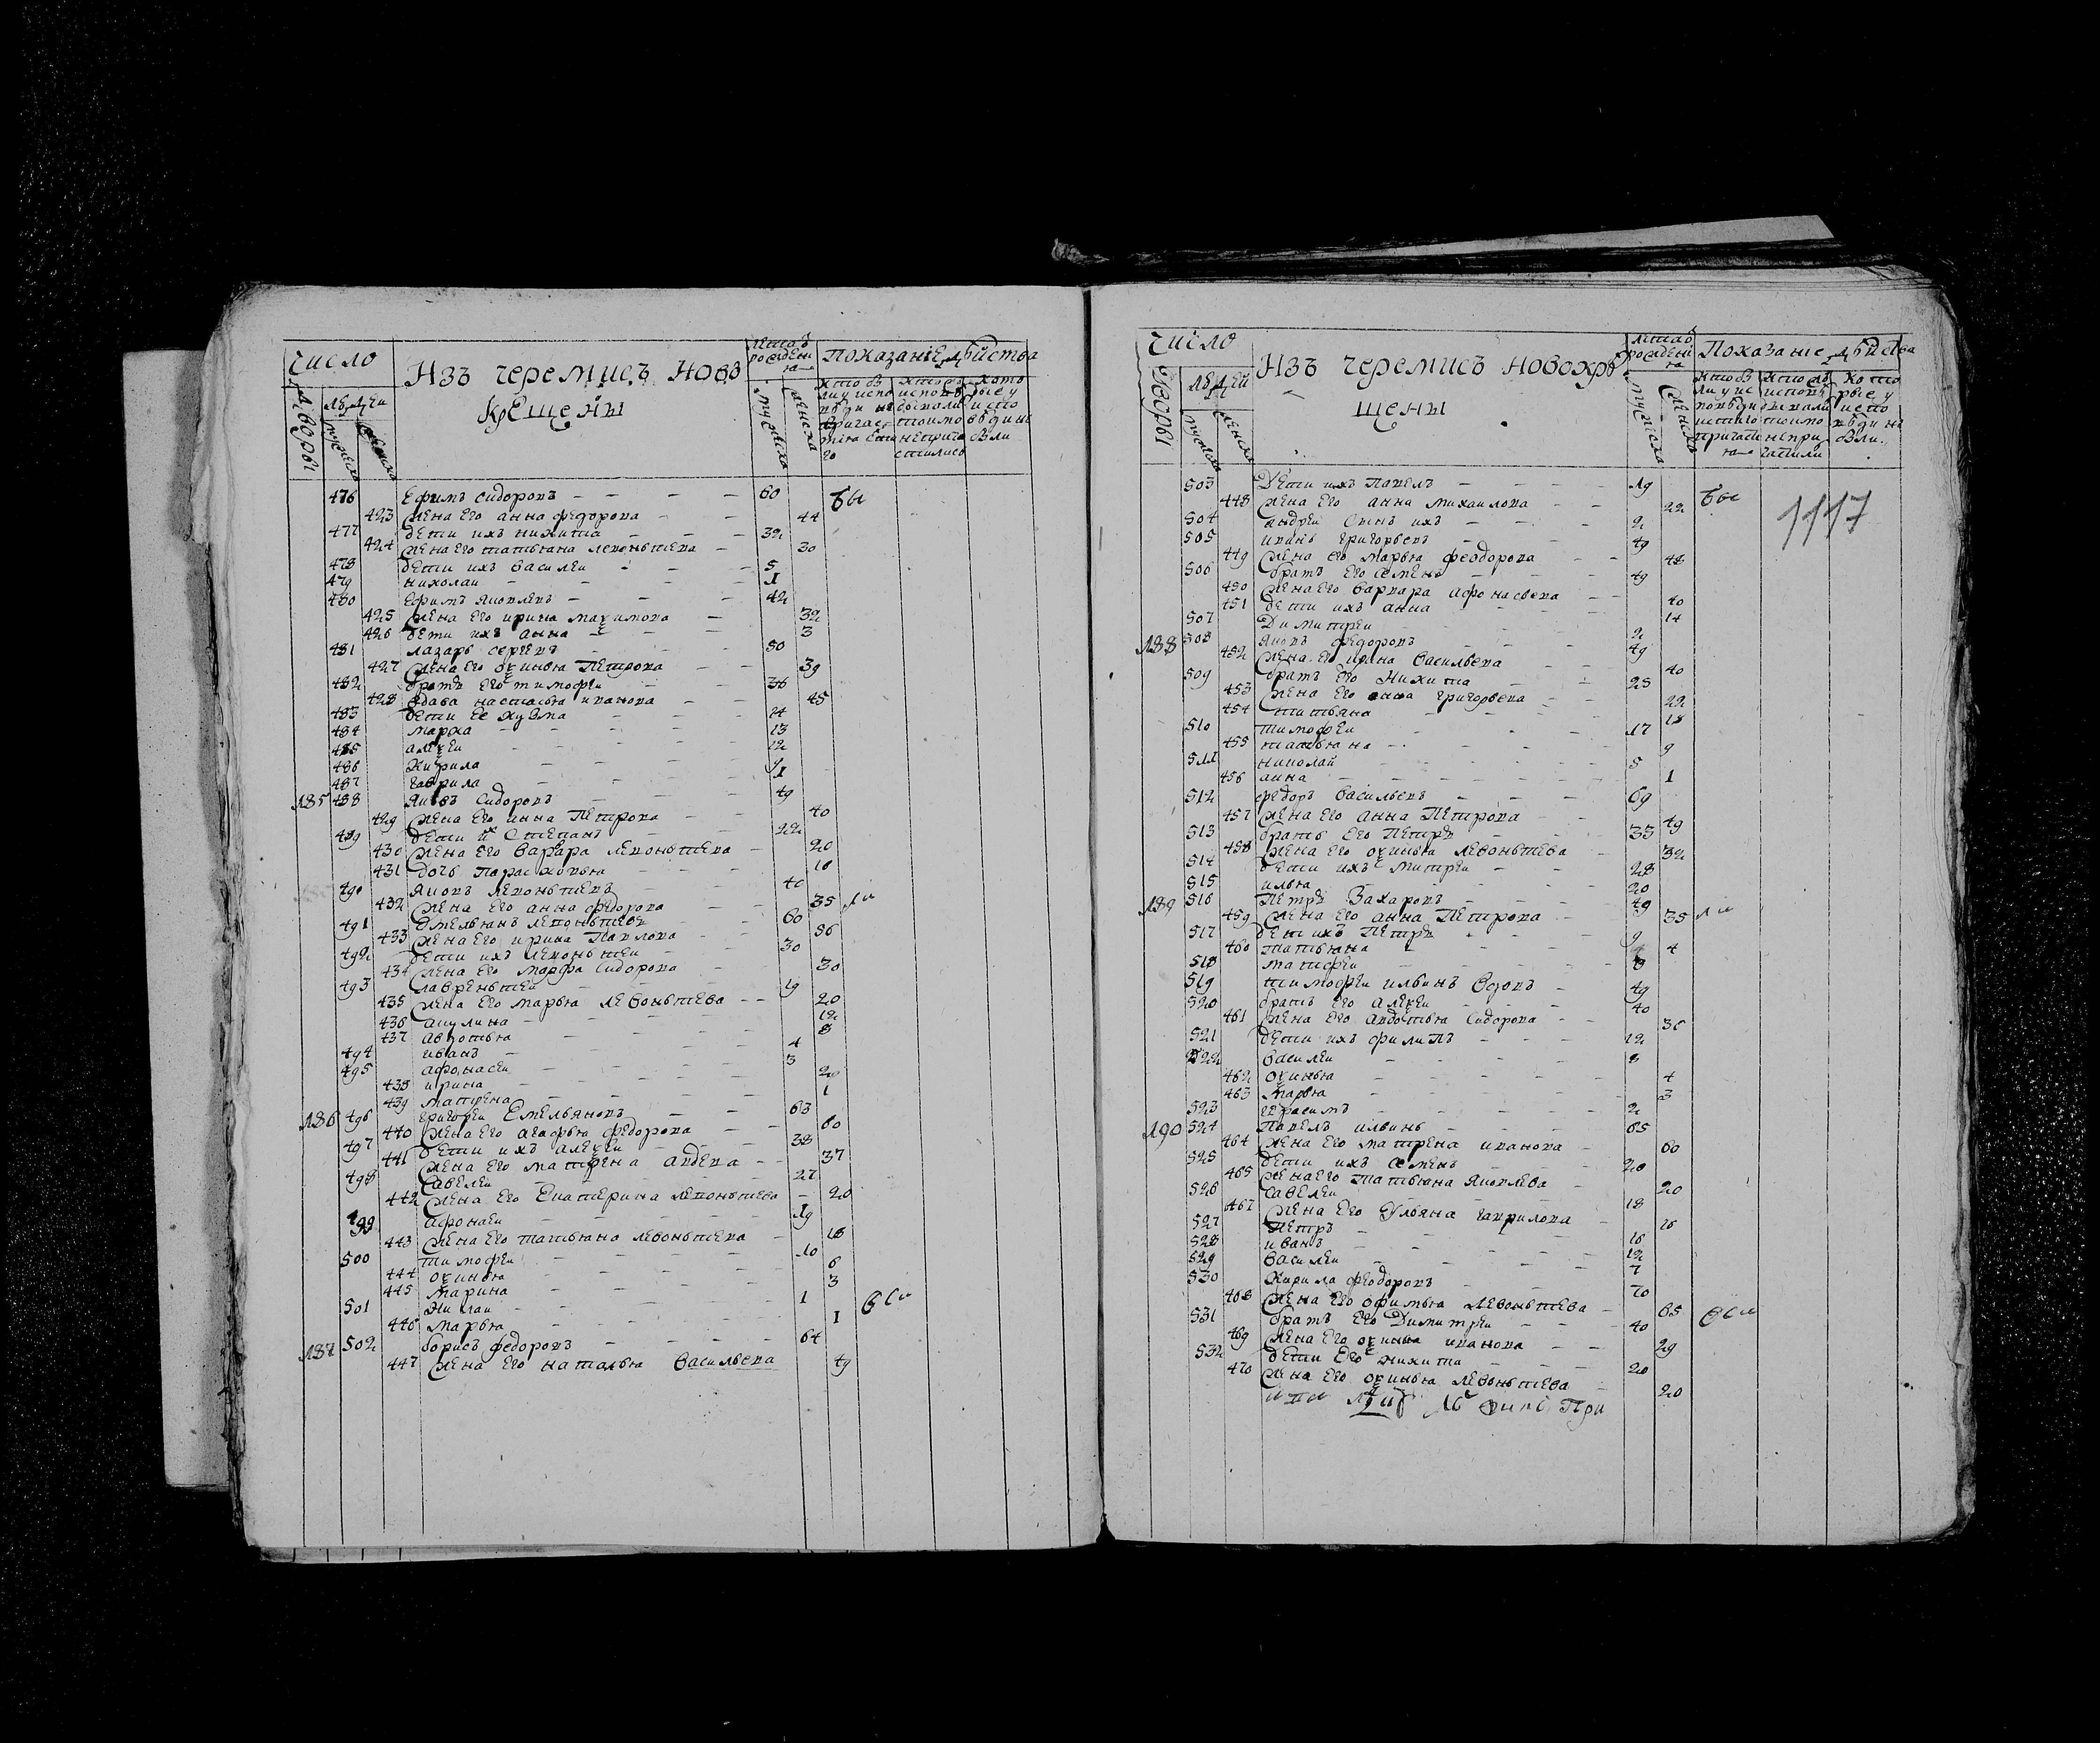 число
Изъ черемисъ новo
крещены
летаъ рождени
Показание действа
дворы
людей
мужеска
женска
мужеска
женска
476 Ефимъ Сидоровъ 60 бы
423 жена его анна федорова 44
477 дети ихъ никита 32
424 жена его татьяна леоньтьева 30
478 дети ихъ василеи 5
479 николаи 1
480 Ефимъ яковлевъ 42
425 жена его ирина максимова 32
426 дети ихъ анна 3
481 лазарь сергеевъ 50
427 жена его оксинья петрова 39
482 братъ его тимофеи 36
428 вдава настасья иванова 45
483 дети ее кузма 14
484 марка 13
485 алексеи 12
486 кирила 9
487 гаврила 1
185 488 яковъ Сидоровъ 49
429 жена его анна петрова 40
489 дети их Степанъ 22
430 жена его варвара левоньтьева 20
431 дочь парасковья 10
490 яковъ левоньтьевъ 40
432 жена его анна федорова 35 ли
491 Емельянъ левоньтьевъ 60
433 жена его ирина павлова 56
492 дети ихъ левоньтеи 30
434 жена его марфа сидорова 30
493 лавреньтеи 19
435 жена его марья левоньтьева 20
436 акулина 12
437 авдотья 8
494 иванъ 4
495 афонасеи 3
438 ирина 20
439 матрена 1
186 496 григореи Емельяновъ 63
440 жена его агафья федорова 60
497 дети ихъ алексеи 38
441 жена его матрена авдеева 37
498 савелеи 27
442 жена его Екатерина левоньтьева 20
499 афонасеи 19
443 жена его татьяна левоньтьева 18
500 тимофеи 10
444 оксинья 6
445 марина 3
501 1
446 марья 1 вси
187 502 борисъ федоровъ 64
447 жена его наталья васильева 49
число
Изъ черемисъ новокре
щены
летаъ рождени
Показание действа
дворы
людей
мужеска
женска
мужеска
женска
503 дети ихъ павелъ 19 бы
1117
448 жена его анна михаилова 22
504 андреи сынъ ихъ 2
505 иванъ григорьевъ 49
449 жена его марья феодорова 48
506 братъ его семенъ 49
450 жена его варвара афонасьева 40
451 дети ихъ анна 14
507 димитреи 2
188 508 яковъ федоровъ 49
452 жена его ирина васильева 40
509 братъ его никита 25
453 жена его анна григорьева 22
454 татьяна 18
510 тимофеи 17
455 татьяна 9
511 николаи 5
456 анна 1
512 федоръ васильевъ 69
457 жена его анна петрова 49
513 братъ его петръ 33
458 жена его оксинья левоньтьева 32
514 дети ихъ митреи 28
515 илья 20
189 516 петръ захаровъ 49
459 жена его анна петрова 35 ли
517 дети ихъ петръ 9
460 татьяна 4
518 матфеи 8
519 тимофеи ильинъ вдовъ 49
520 братъ его алексеи 40
461 жена его авдотья сидорова 36
521 дети ихъ филипъ 12
522 василеи 8
462 оксинья 4
463 марья 3
523 герасимъ 2
190 524 павелъ ильинъ 65
464 жена его матрена иванова 60
525 дети ихъ семенъ 20
465 жена его татьяна яковлева 20
526 савелеи 18
467 жена его ульяна гаврилова 16
527 петръ 16
528 иванъ 12
529 василеи 7
530 кирила феодоровъ 70
468 жена его офимья левоньтьева 65 вси
531 братъ его димитреи 40
469 жена его оксинья иванова 29
532 дети его никита 20
470 жена его оксинья левоньтьева 20